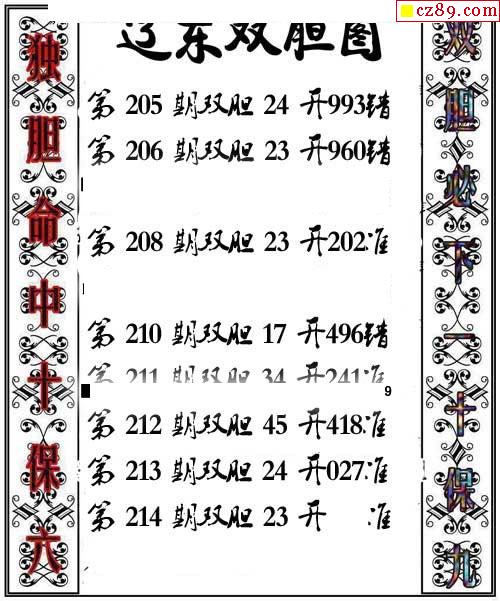 cz89.com
辽东双胆图
独胆命中十保六
双胆必下一十保九
第 205 期双胆 24 开993错
第 206 期双胆 23 开960错
第 208 期双胆 23 开202准
第 210 期双胆 17 开496错
第 211 期双胆 34 开241准
9
第 212 期双胆 45 开418准
第 213 期双胆 24 开027准
第 214 期双胆 23 开 准